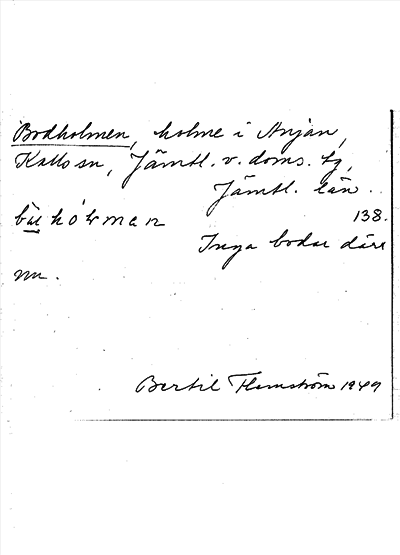 Bodholmen, holme i Anjan,
Kall sn, Jämtl. v. doms. tg,
Jämtl. län.
138.
Inga bodar där
nu.
Bertil Flemström 1949